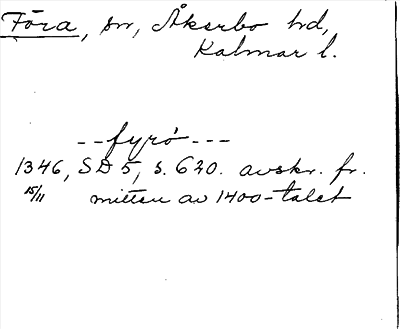 Föra, sn, Åkerbo hd,
Kalmar l.
--fyrö---
1346, SD 5, s. 620. avskr. fr.
15/11 mitten av 1400-talet